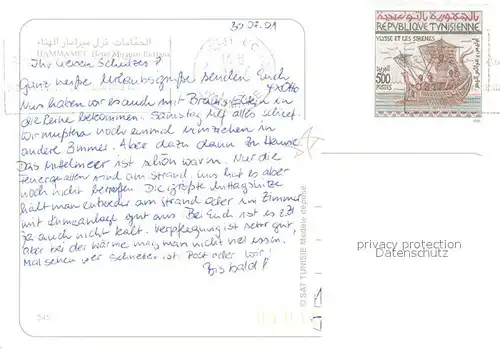 30.07.01
الحمّامات نزل ميرامار الهناء
HAMMAMET Hôtel Miramar El Hana
Ihr lieben Schulzes!
Ganz heiße Urlaubsgrüße senden Euch
Nun haben wir es auch mit
die Reihe bekommen. Samstag lief alles schief.
Wir mußten noch einmal umziehen in
andere Zimmer. Aber dazu dann zu Hause
Das Mittelmeer ist schön warm. Nur die
Feuerquallen sind am Strand, uns hat es aber
noch nicht betroffen. Die größte Mittagshitze
hält man entweder am Strand oder im Zimmer
mit Klimaanlage gut aus. Bei Euch ist es z.Z.
ja auch nicht kalt. Verpflegung ist sehr gut,
aber bei der Wärme mag man nicht viel essen.
Mal sehen wer schneller ist Post oder wir!
Bis bald!
345
© SAT TUNISIE Modèle déposé
الجمهورية التونسية
REPUBLIQUE TUNISIENNE
ULYSSE ET LES SIRENES
500
البريد
POSTES
privacy protection
Datenschutz